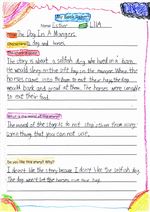 My Book Report
Name: Esther
Title: The Dog In A Manger
Characters: dog and horses
The story is about a selfish dog who lived in a barn.
He would sleep on the hay in the manger. When the
horses came into the barn to eat their hay, the dog
would bark and growl at them. The horses were unable
to eat their food.
What is the moral of the story?
The moral of the story is to not keep others from using
some thing that you can not use.
Do you like this story? Why?
I don't like the story because I don't like the selfish dog.
The dog won't let the horses eat hay.